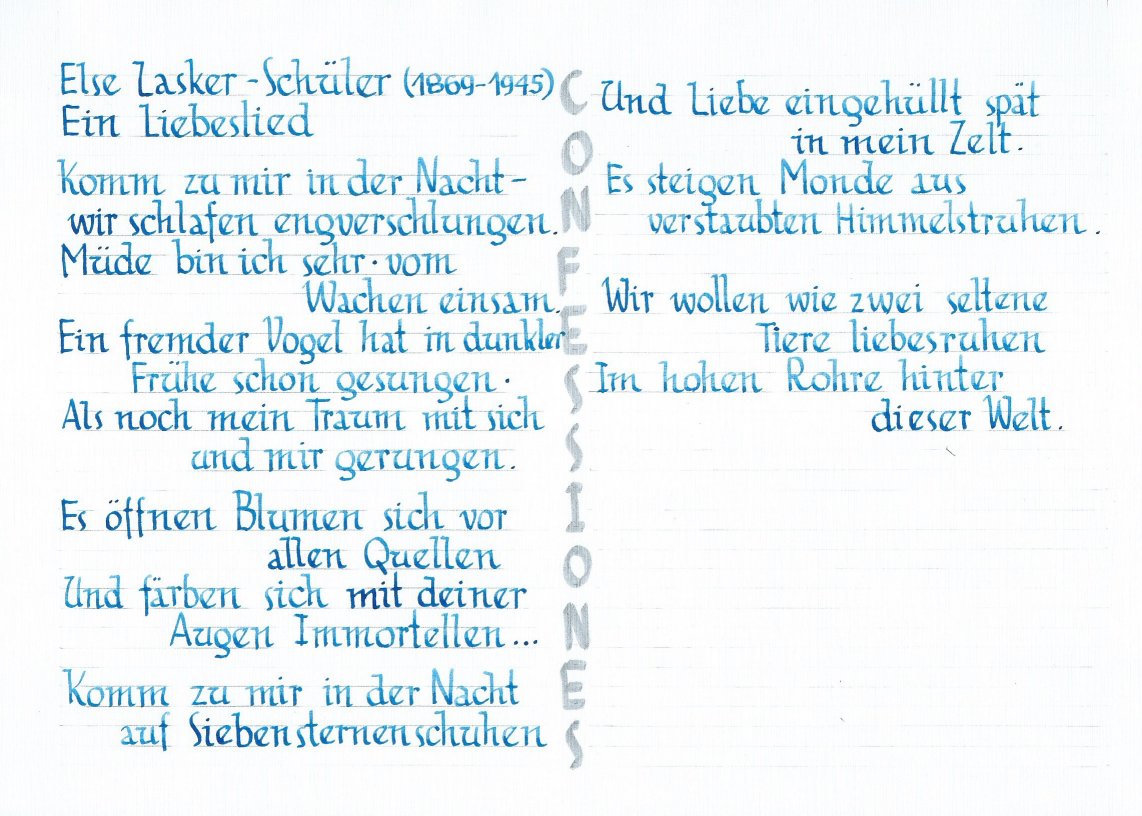 Else Lasker-Schüler (1869-1945)
Ein Liebeslied
Komm zu mir in der Nacht -
wir schlafen engverschlungen.
Müde bin ich sehr · vom
Wachen einsam.
Ein fremder Vogel hat in dunkler
Frühe schon gesungen ·
Als noch mein Traum mit sich
und mir gerungen.
Es öffnen Blumen sich vor
allen Quellen
Und färben sich mit deiner
Augen Immortellen...
Komm zu mir in der Nacht
auf Siebensternenschuhen
CONFESSIONES
Und Liebe eingehüllt spät
in mein Zelt.
Es steigen Monde aus
verstaubten Himmelstruhen.
Wir wollen wie zwei seltene
Tiere liebesruhen
Im hohen Rohre hinter
dieser Welt.